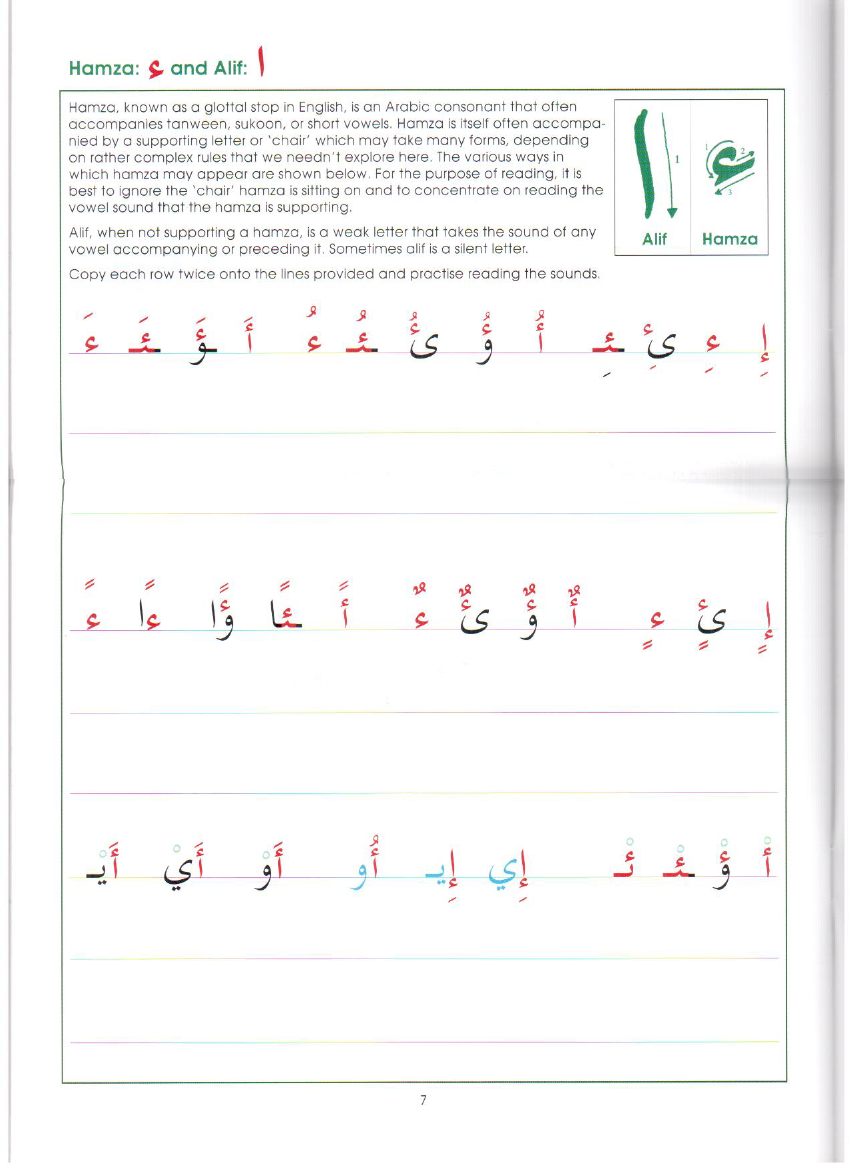 Hamza: ء and Alif: ا
Hamza, known as a glottal stop in English, is an Arabic consonant that often
accompanies tanween, sukoon, or short vowels. Hamza is itself often accompa-
nied by a supporting letter or 'chair' which may take many forms, depending
on rather complex rules that we needn't explore here. The various ways in
which hamza may appear are shown below. For the purpose of reading, it is
best to ignore the 'chair' hamza is sitting on and to concentrate on reading the
vowel sound that the hamza is supporting.
Alif, when not supporting a hamza, is a weak letter that takes the sound of any
vowel accompanying or preceding it. Sometimes alif is a silent letter.
Copy each row twice onto the lines provided and practise reading the sounds.
1
1 2 3
Alif Hamza
إِ ءِ ئِ ـئِـ أُ ؤُ ئُ ـئُـ ءُ أَ ؤَ ـئَـ ءَ
إٍ ئٍ ءٍ أٌ ؤٌ ئٌ ءٌ أً ـئًا ؤًا ءًا ءً
أْ ؤْ ـئْـ ئْـ إِي إِيـ أُو أَوْ أَيْ أَيْـ
7